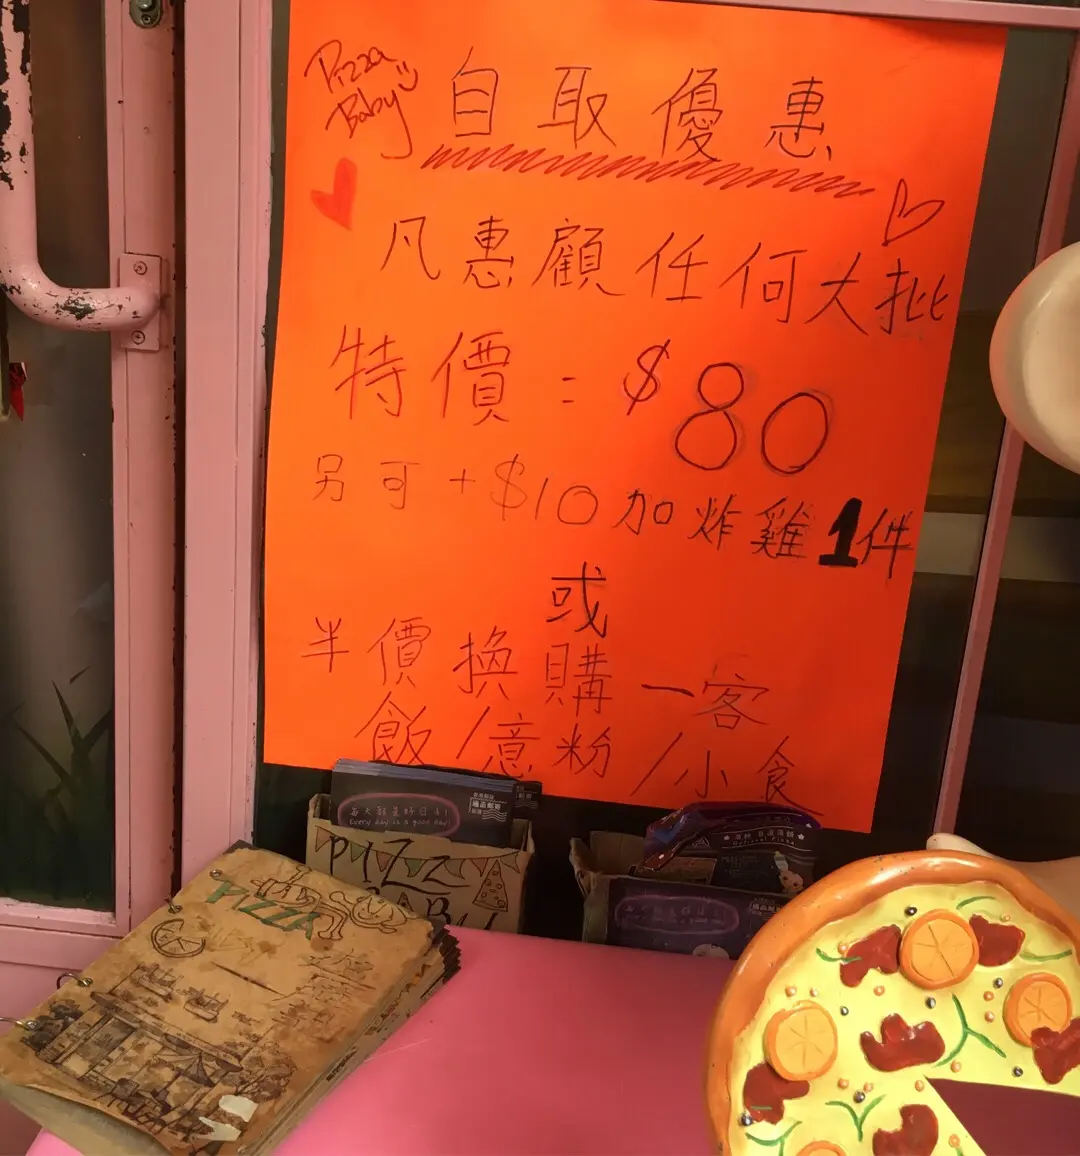 Pizza
Baby
自取優惠
凡惠顧任何大批
特價：$80
另可+$10加炸雞1件
或
半價換購一客
飯/意粉/小食
每天都是好日子!
Every day is a good day!
PIZZ
PIZZA